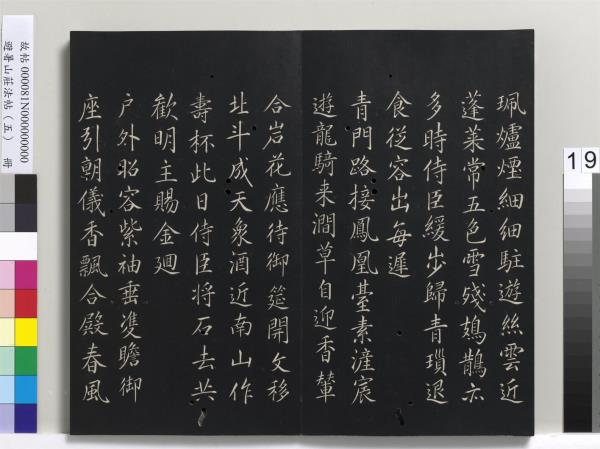 珮爐煙細細駐遊絲雲近
蓬萊常五色雪殘鳷鵲亦
多時侍臣緩步歸青瑣退
食從容出每遲
青門路接鳳凰臺素滻宸
遊龍騎来澗草自迎香輦
合岩花應待御筵開文移
北斗成天象酒近南山作
壽杯此日侍臣将石去共
歡明主賜金迴
户外昭容紫袖垂雙瞻御
座引朝儀香飄合殿春風
故帖 000081N000000000
避暑山莊法帖（五） 冊
19